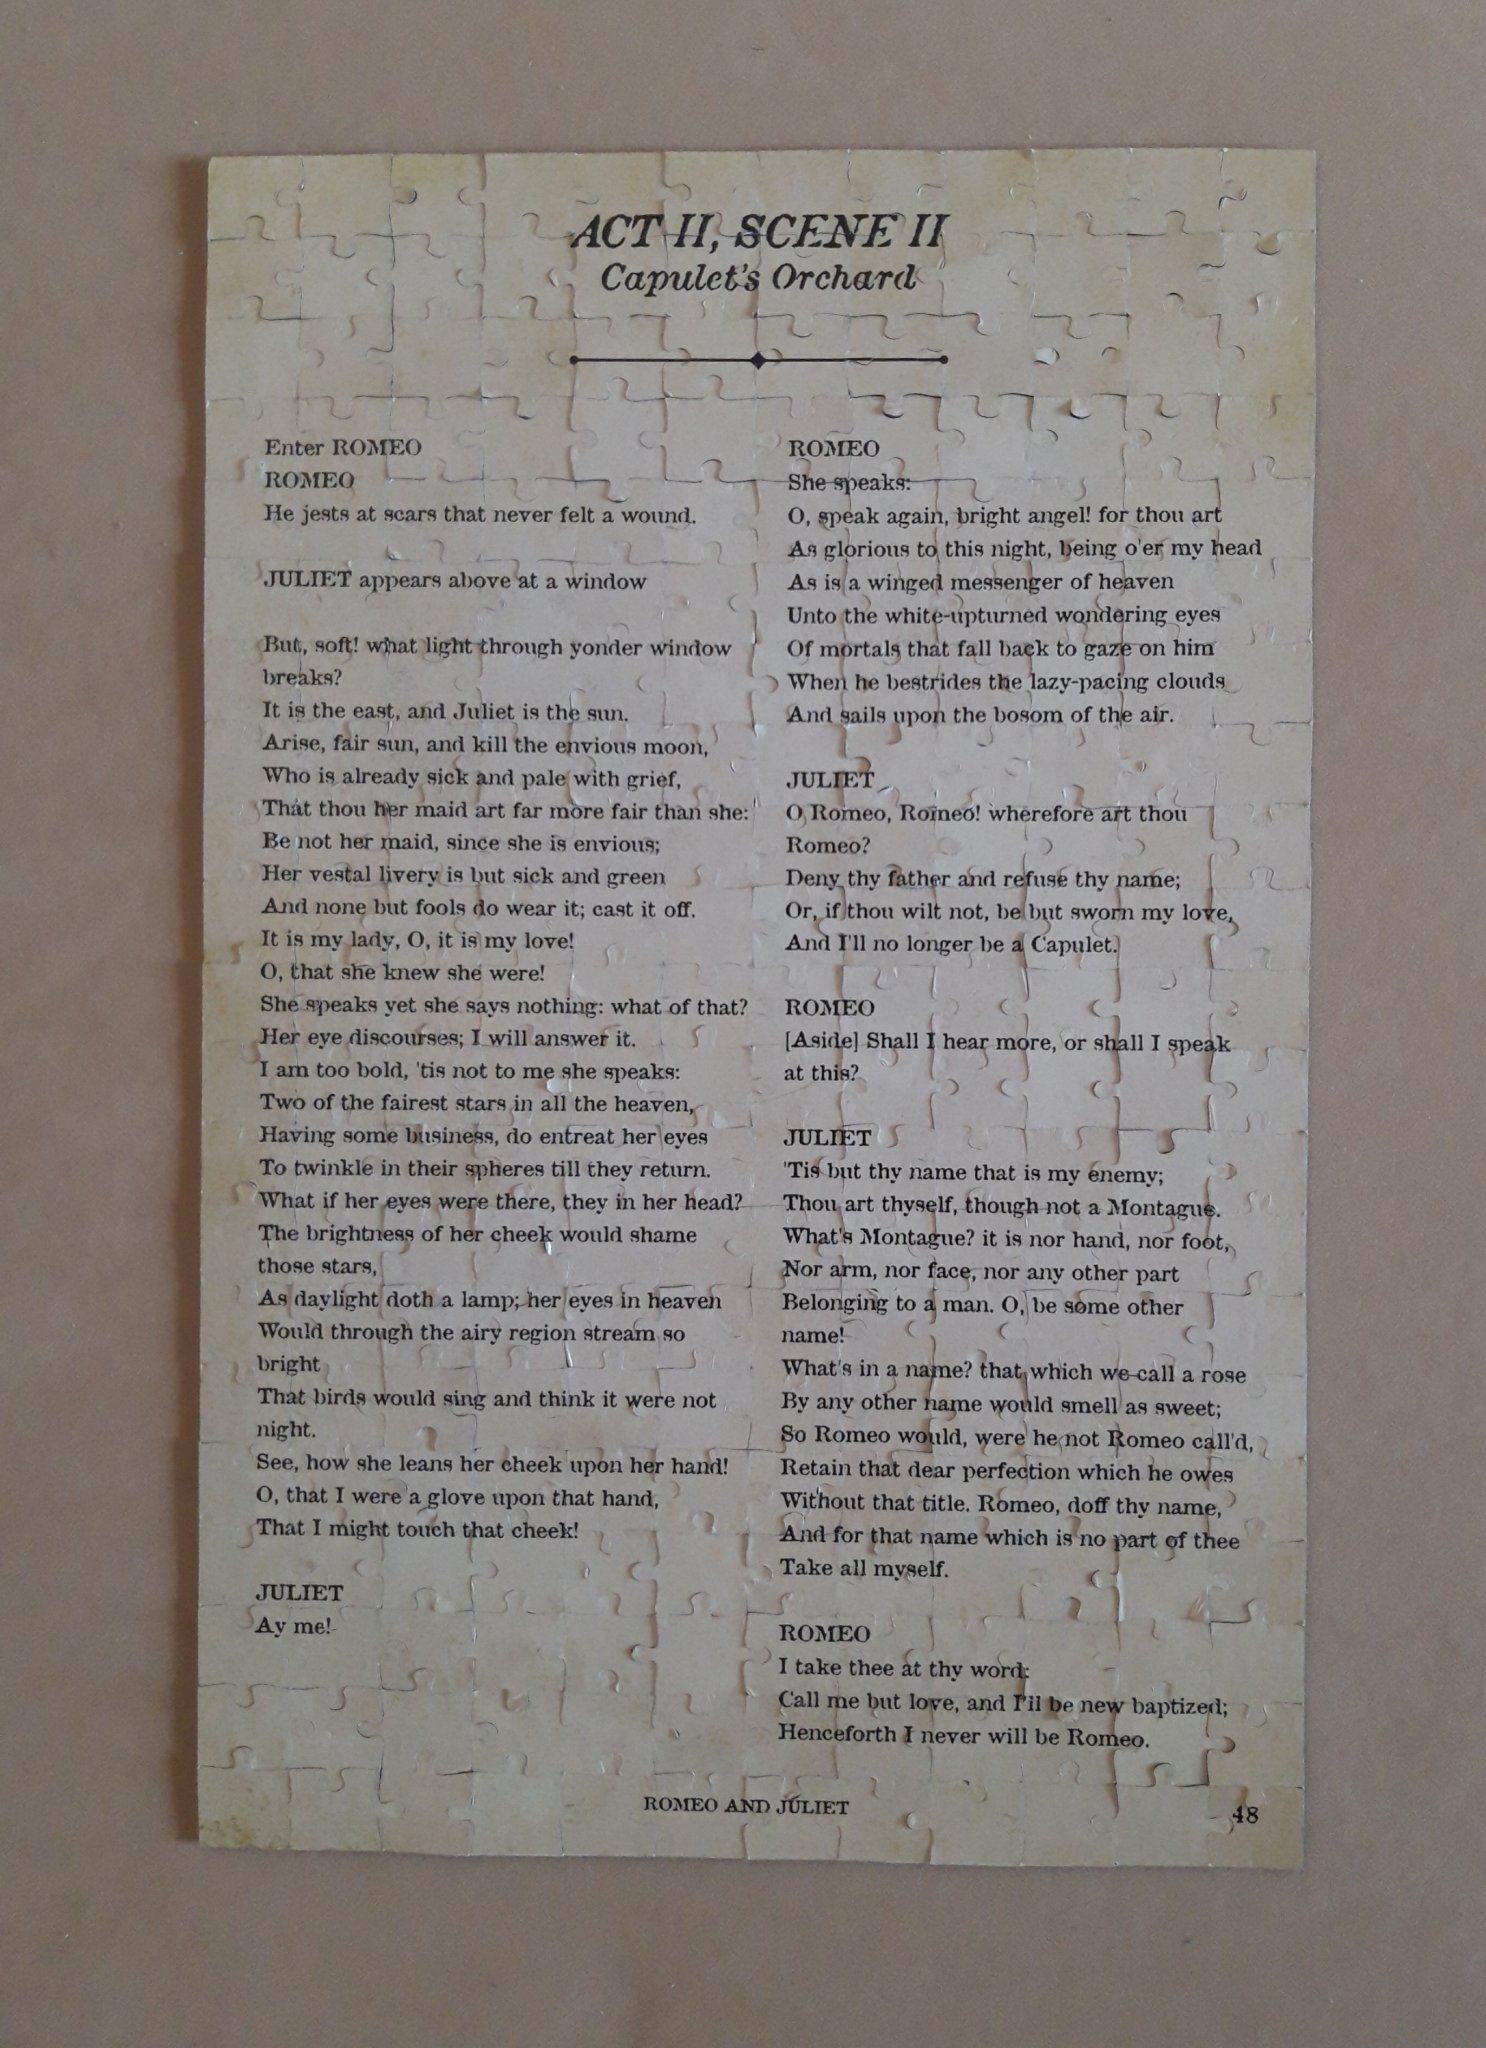 ACT II, SCENE II
Capulet's Orchard
Enter ROMEO
ROMEO
He jests at scars that never felt a wound.
JULIET appears above at a window
But, soft! what light through yonder window
breaks?
It is the east, and Juliet is the sun.
Arise, fair sun, and kill the envious moon,
Who is already sick and pale with grief,
That thou her maid art far more fair than she:
Be not her maid, since she is envious;
Her vestal livery is but sick and green
And none but fools do wear it; cast it off.
It is my lady, O, it is my love!
O, that she knew she were!
She speaks yet she says nothing: what of that?
Her eye discourses; I will answer it.
I am too bold, 'tis not to me she speaks:
Two of the fairest stars in all the heaven,
Having some business, do entreat her eyes
To twinkle in their spheres till they return.
What if her eyes were there, they in her head?
The brightness of her cheek would shame
those stars,
As daylight doth a lamp; her eyes in heaven
Would through the airy region stream so
bright
That birds would sing and think it were not
night.
See, how she leans her cheek upon her hand!
O, that I were a glove upon that hand,
That I might touch that cheek!
JULIET
Ay me!
ROMEO
She speaks:
O, speak again, bright angel! for thou art
As glorious to this night, being o'er my head
As is a winged messenger of heaven
Unto the white-upturned wondering eyes
Of mortals that fall back to gaze on him
When he bestrides the lazy-pacing clouds
And sails upon the bosom of the air.
JULIET
O Romeo, Romeo! wherefore art thou
Romeo?
Deny thy father and refuse thy name;
Or, if thou wilt not, be but sworn my love,
And I'll no longer be a Capulet.
ROMEO
[Aside] Shall I hear more, or shall I speak
at this?
JULIET
'Tis but thy name that is my enemy;
Thou art thyself, though not a Montague.
What's Montague? it is nor hand, nor foot,
Nor arm, nor face, nor any other part
Belonging to a man. O, be some other
name!
What's in a name? that which we call a rose
By any other name would smell as sweet;
So Romeo would, were he not Romeo call'd,
Retain that dear perfection which he owes
Without that title. Romeo, doff thy name,
And for that name which is no part of thee
Take all myself.
ROMEO
I take thee at thy word:
Call me but love, and I'll be new baptized;
Henceforth I never will be Romeo.
ROMEO AND JULIET
48